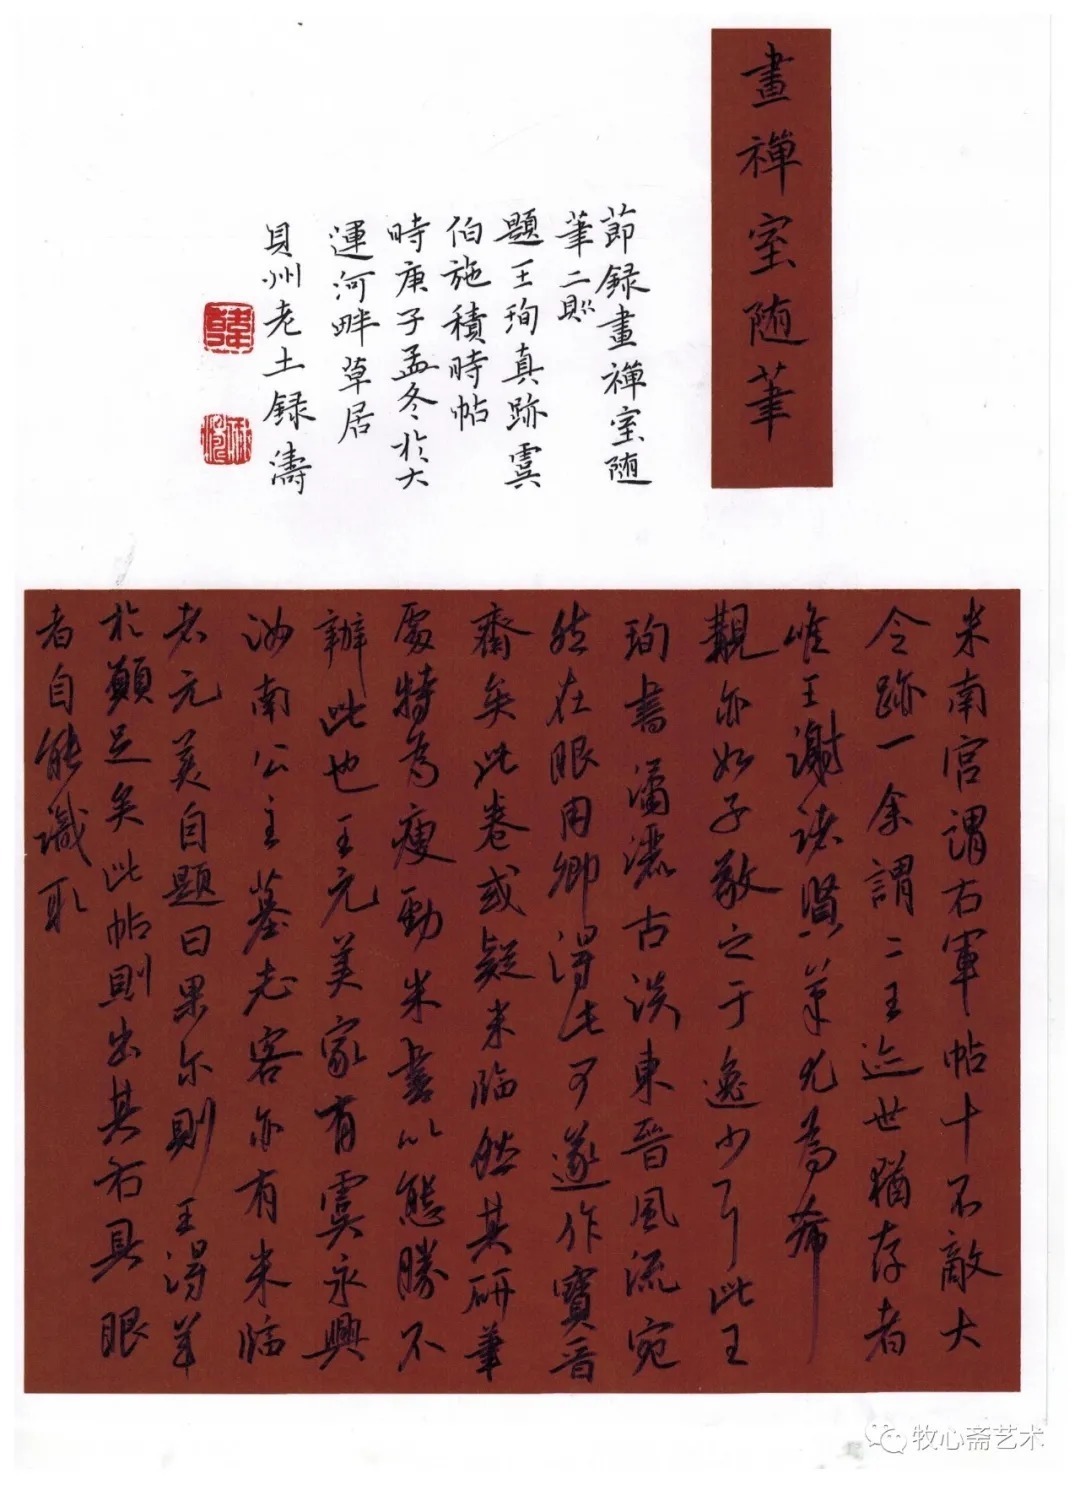 畫禪室随筆
節録畫禪室随
筆二則
題王珣真跡虞
伯施積時帖
時庚子孟冬於大
運河畔草居
貝州老土録濤
米南宫謂右軍帖十不敵大
令跡一余謂二王迹世猶存者
唯王謝諸賢筆尤為希
覯亦如子敬之于逸少耳此王
珣書瀟灑古淡東晉風流宛
然在眼用卿得此可遂作寶晋
齋矣此卷或疑米臨然其研筆
處特為瘦勁米書以態勝不
辦此也王元美家有虞永興
汝南公主墓志客亦有米臨
者元美自題曰果尔則王得筆
於顛足矣此帖則出其右具眼
者自能識取
牧心斋艺术